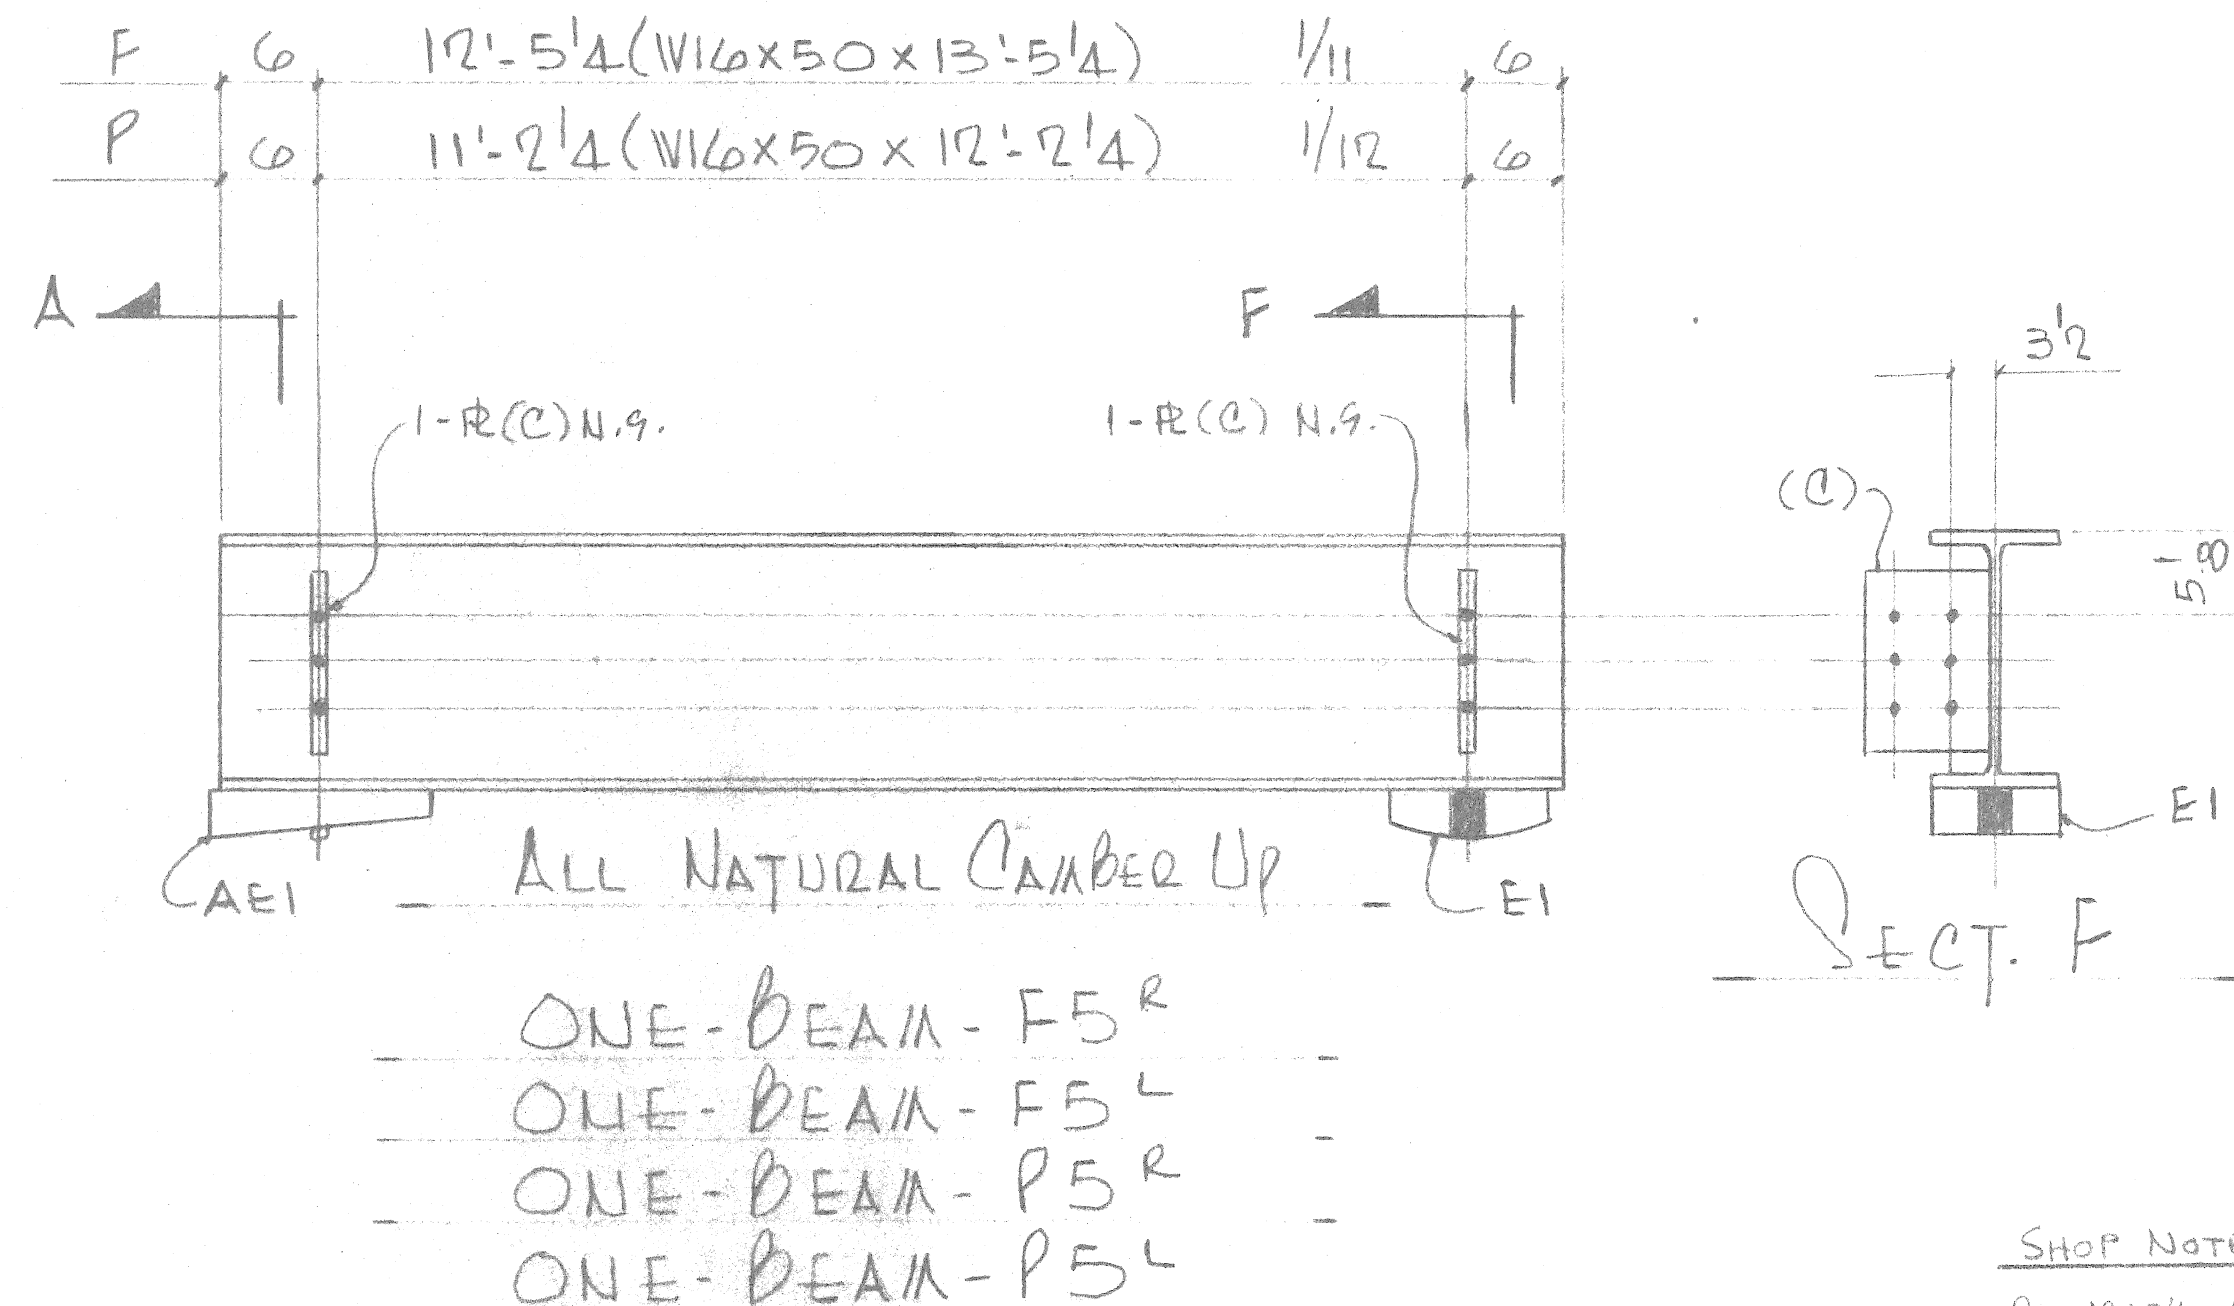 F 6 12'-5 1/4 (W16x50x13'-5 1/4) 1/11 6
P 6 11'-2 1/4 (W16x50x12'-2 1/4) 1/12 6
A
F
3 1/2
1-PL(C) N.S.
1-PL(C) N.S.
(C)
-5
E1
AE1
ALL NATURAL CAMBER UP
E1
SECT. F
ONE-BEAM-F5R
ONE-BEAM-F5L
ONE-BEAM-P5R
ONE-BEAM-P5L
SHOP